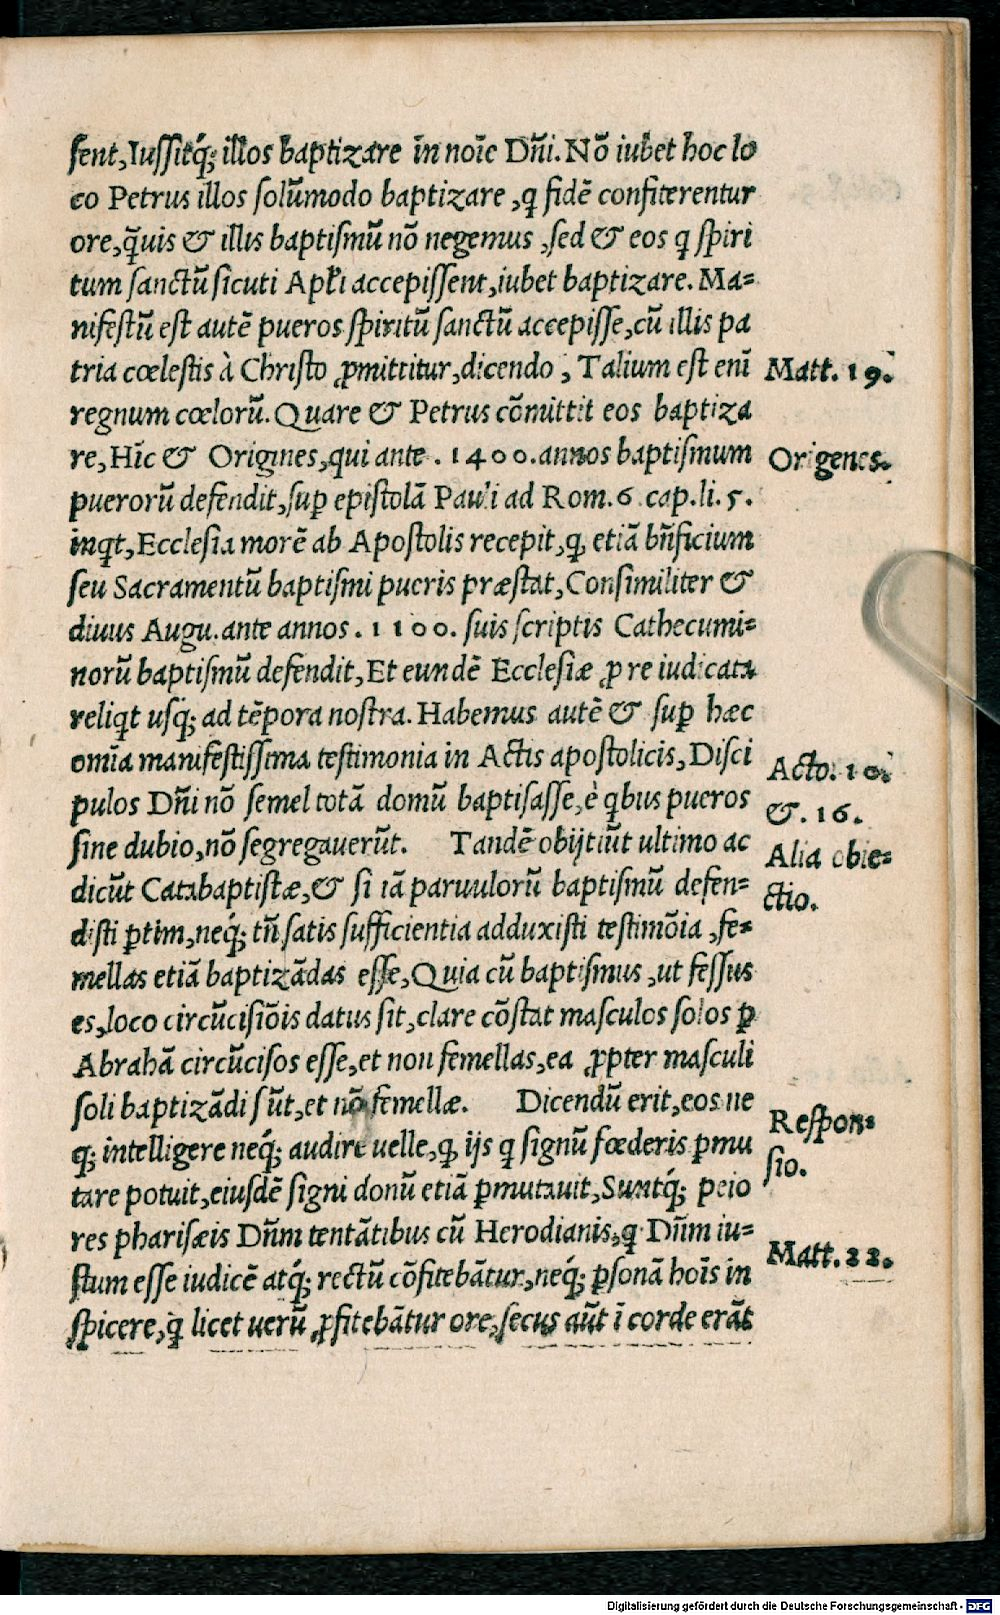 sent, Iussitq́; illos baptizare in noīe Dñi. Nō iubet hoc lo
co Petrus illos solūmodo baptizare, q fidē confiterentur
ore, q̄uis & illis baptismū nō negemus, sed & eos q spiri
tum sanctū sicuti Apłi accepissent, iubet baptizare. Ma=
nifestū est autē pueros spiritū sanctū accepisse, cū illis pa
tria cœlestis à Christo ꝓmittitur, dicendo, Talium est enī
Matt. 19.
regnum cœlorū. Quare & Petrus cōmittit eos baptiza
re, Hīc & Origines, qui ante. 1400. annos baptismum
Origenes.
puerorū defendit, suꝑ epistolā Pauli ad Rom. 6 cap. li. 5.
inqt, Ecclesia morē ab Apostolis recepit, ꝙ etiā bñficium
seu Sacramentū baptismi pueris præstat, Consimiliter &
diuus Augu. ante annos. 1100. suis scriptis Cathecumi=
norū baptismū defendit, Et eundē Ecclesiæ ꝓ re iudicata
reliqt usq́; ad tēpora nostra. Habemus autē & suꝑ hæc
omīa manifestissima testimonia in Actis apostolicis, Disci
Acto. 10.
pulos Dñi nō semel totā domū baptisasse, è qbus pueros
&. 16.
sine dubio, nō segregauerūt. Tandē obijtiūt ultimo ac
Alia obie=
dicūt Catabaptistæ, & si iā paruulorū baptismū defen=
ctio.
disti ꝑtim, neq́; tñ satis sufficientia adduxisti testimōia, fe=
mellas etiā baptizādas esse, Quia cū baptismus, ut fessus
es, loco circūcisiōis datus sit, clare cōstat masculos solos ꝑ
Abrahā circūcisos esse, et non femellas, ea ꝓpter masculi
soli baptizādi sūt, et nō femellæ. Dicendū erit, eos ne
Respon=
q; intelligere neq́; audire uelle, ꝙ ijs q signū fœderis ꝑmu
sio.
tare potuit, eiusdē signi donū etiā ꝑmutauit, Suntq́; peio
res pharisæis Dñm tentātibus cū Herodianis, q Dñm iu=
Matt. 22.
stum esse iudicē atq́; rectū cōfitebātur, neq́; ꝑsonā hoīs in
spicere, q licet uerū ꝓfitebātur ore, secus aūt ī corde erāt
Digitalisierung gefördert durch die Deutsche Forschungsgemeinschaft - DFG